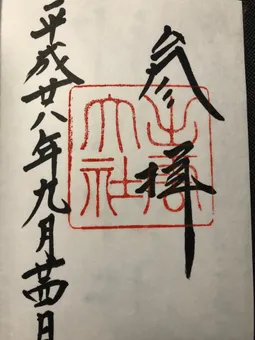 参拝
出雲
大社
平成廿八年九月廿四日